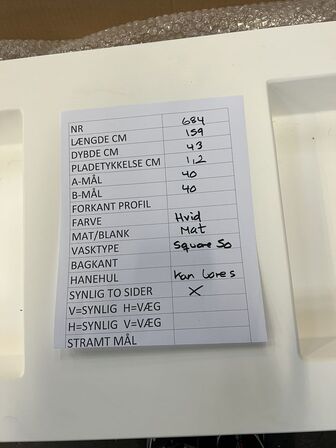 NR 684
LÆNGDE CM 159
DYBDE CM 43
PLADETYKKELSE CM 1,2
A-MÅL 40
B-MÅL 40
FORKANT PROFIL
FARVE Hvid
MAT/BLANK Mat
VASKTYPE Square 50
BAGKANT
HANEHUL Kan laves
SYNLIG TO SIDER X
V=SYNLIG H=VÆG
H=SYNLIG V=VÆG
STRAMT MÅL